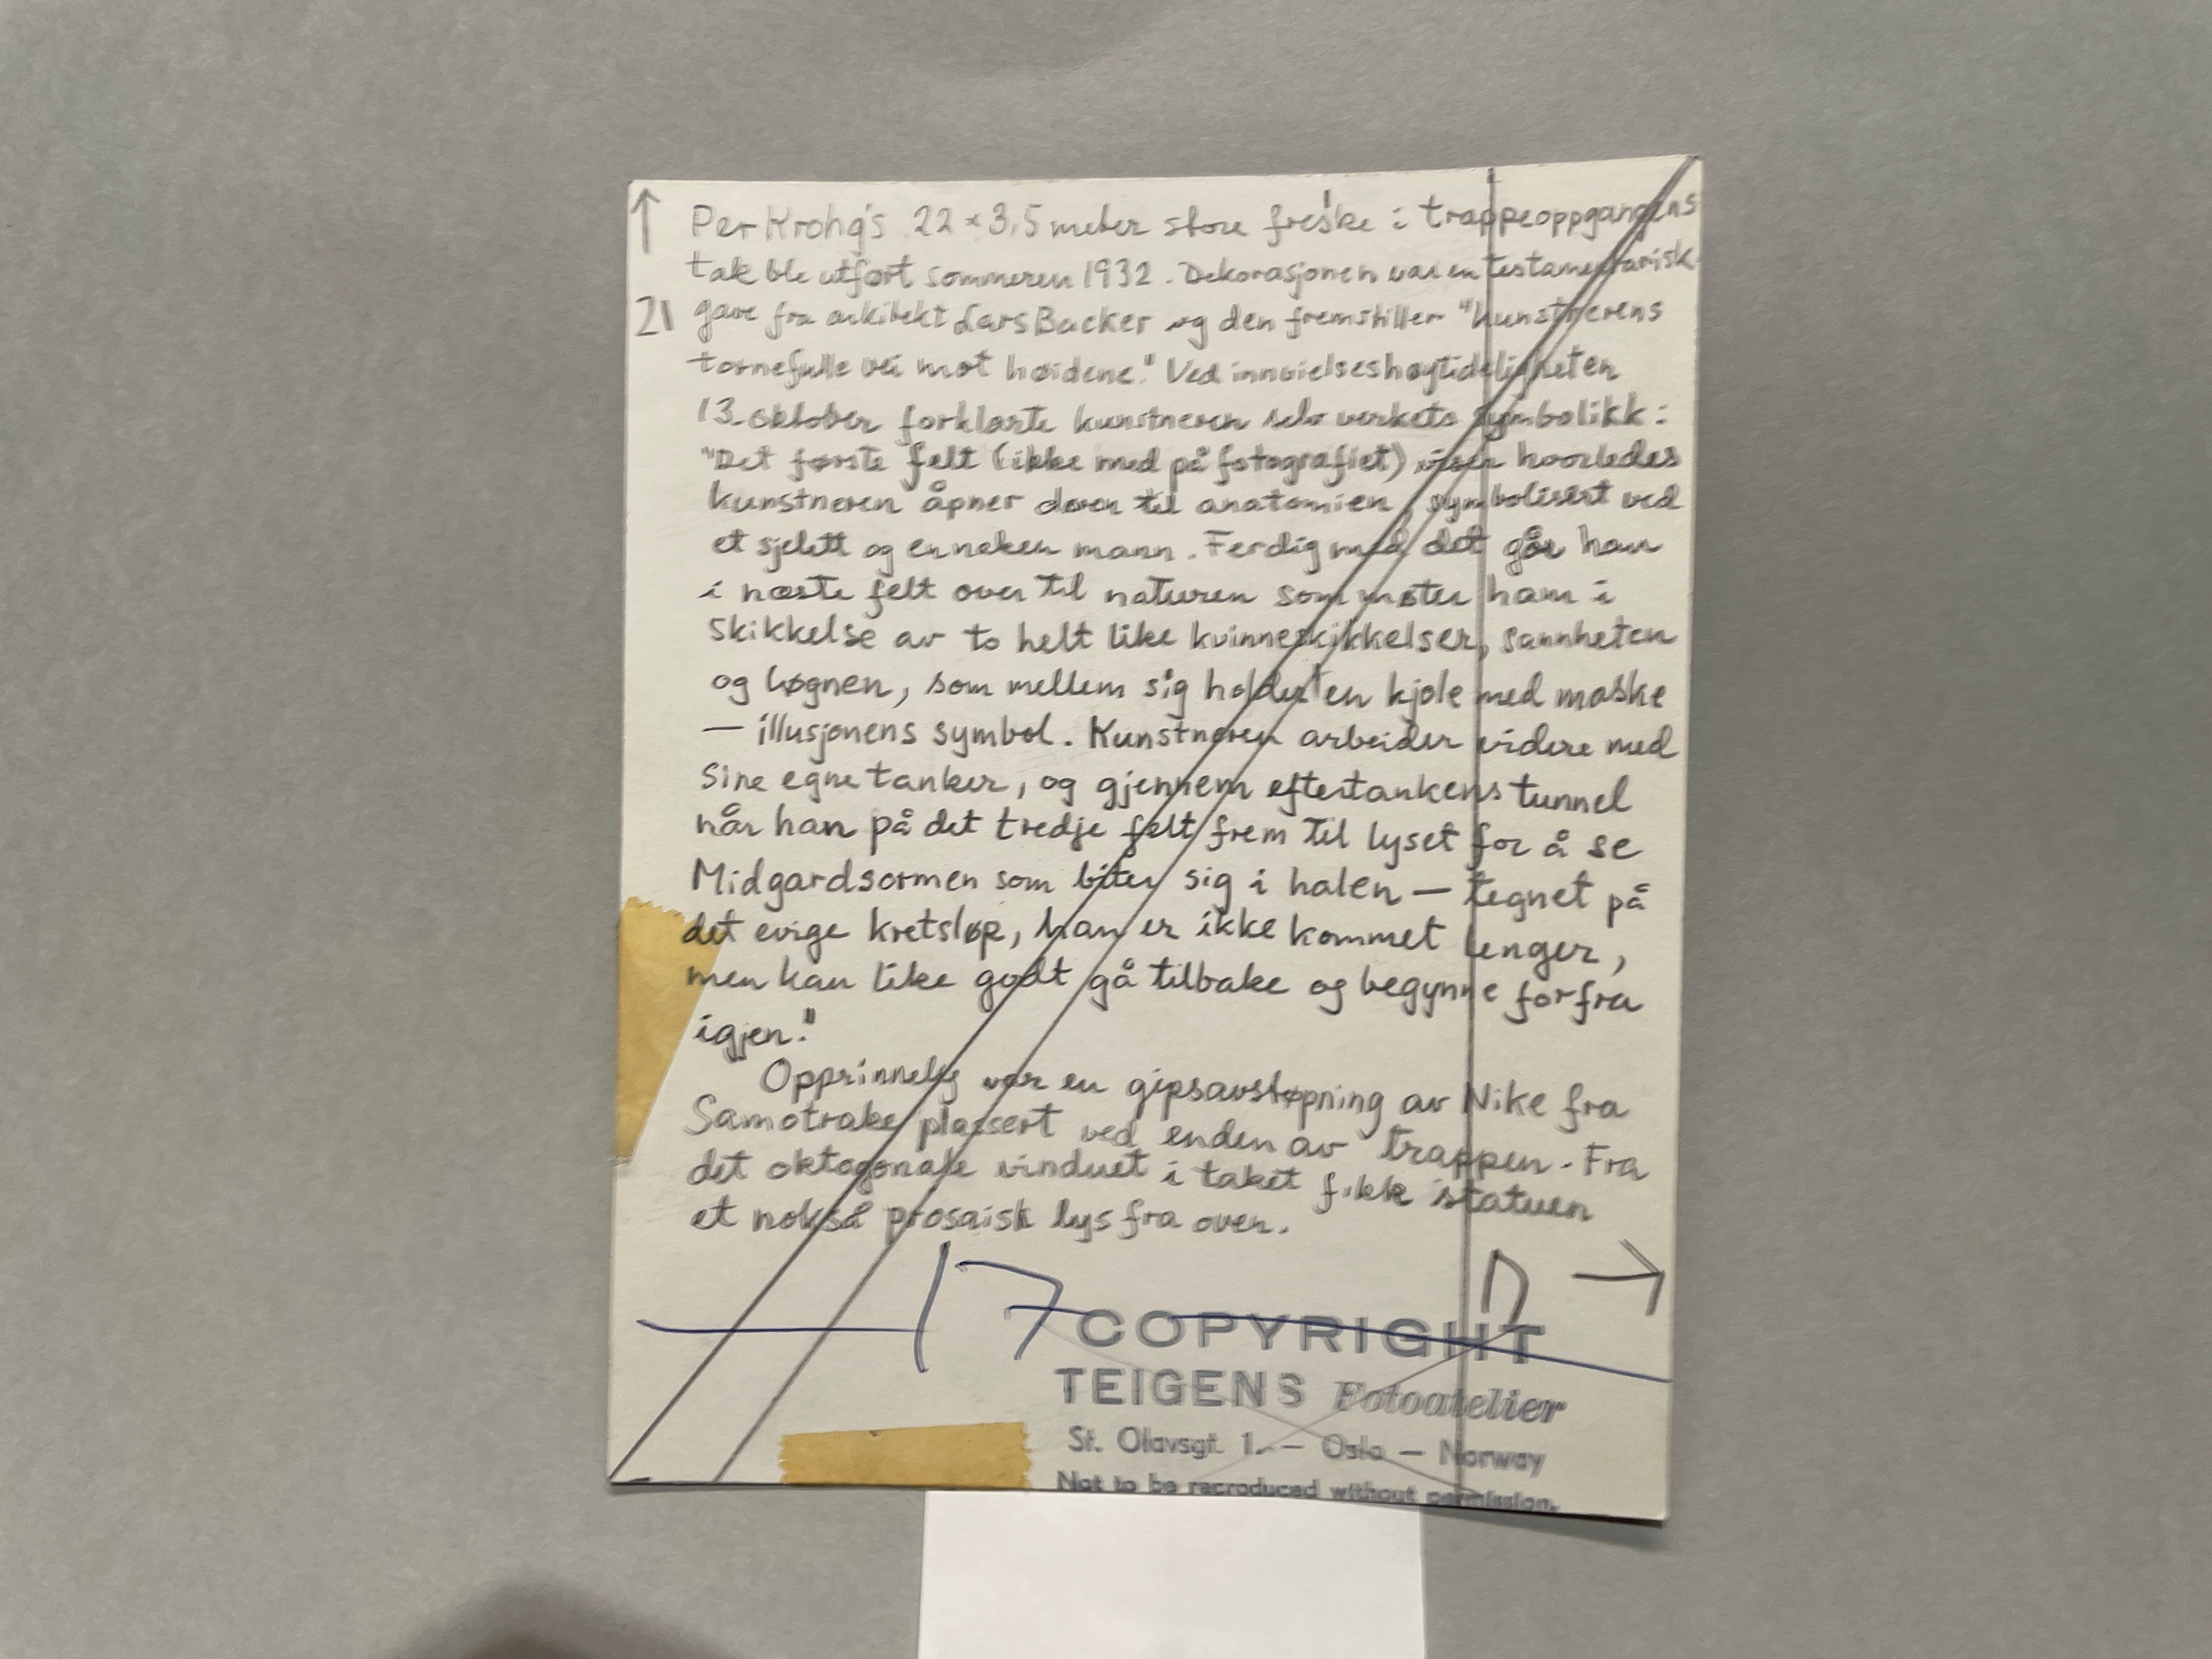 ↑
Per Krohg's 22 × 3,5 meter store freske i trappeoppgangens
tak ble utført sommeren 1932. Dekorasjonen var en testamentarisk
21
gave fra arkitekt Lars Backer og den fremstiller "kunstnerens
tornefulle vei mot høidene." Ved innvielseshøytideligheten
13. oktober forklarte kunstneren selv verkets symbolikk:
"Det første felt (ikke med på fotografiet) viser hvorledes
kunstneren åpner døren til anatomien, symbolisert ved
et sjelett og en naken mann. Ferdig med det går han
i næste felt over til naturen som møter ham i
skikkelse av to helt like kvinneskikkelser, sannheten
og løgnen, som mellem sig holder en kjole med maske
— illusjonens symbol. Kunstneren arbeider videre med
sine egne tanker, og gjennem eftertankens tunnel
når han på det tredje felt frem til lyset for å se
Midgardsormen som biter sig i halen — tegnet på
det evige kretsløp, han er ikke kommet lenger,
men kan like godt gå tilbake og begynne forfra
igjen."
Opprinnelig var en gipsavstøpning av Nike fra
Samotrake plassert ved enden av trappen. Fra
det oktogonale vinduet i taket fikk statuen
et nokså prosaisk lys fra oven.
17
→
COPYRIGHT
TEIGENS Fotoatelier
St. Olavsgt. 1. — Oslo — Norway
Not to be reproduced without permission.